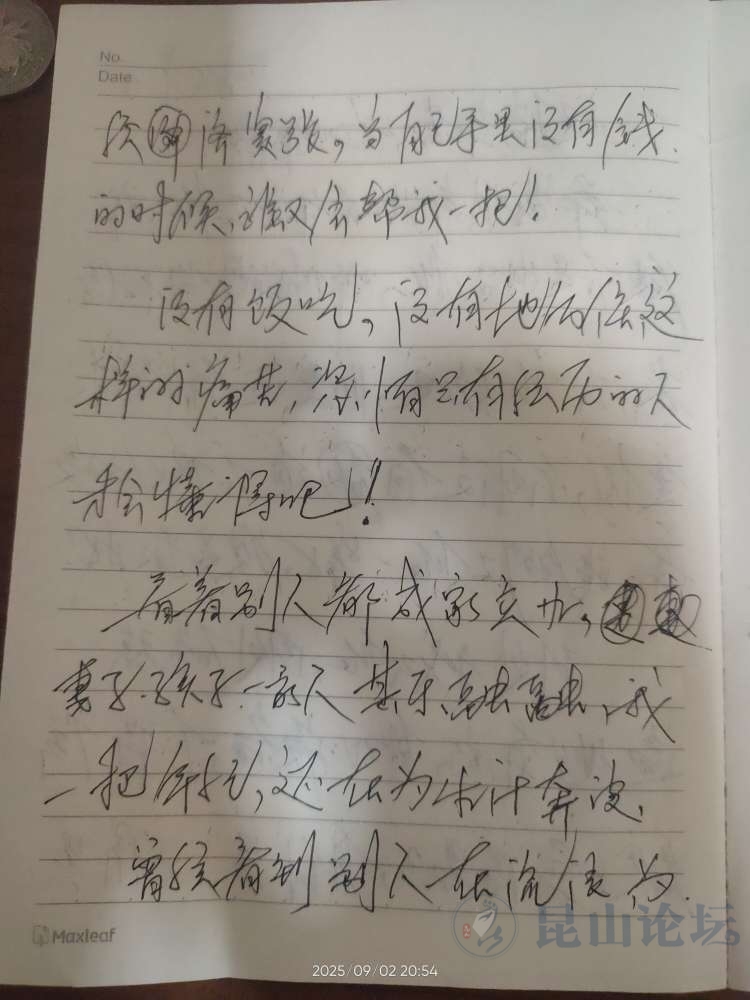 No.
Date
济 当自己手里没有钱、
的时候、谁又会帮我一把！
没有饭吃，没有地方住这
样的痛苦，只有经历的人
才会懂得吧！
看着别人都成家立业，
妻子、孩子、一家人其乐融融，我
一把年纪，还在为生计奔波、
曾经看到别人在流浪为
Maxleaf
2025/09/02 20:54
昆山论坛